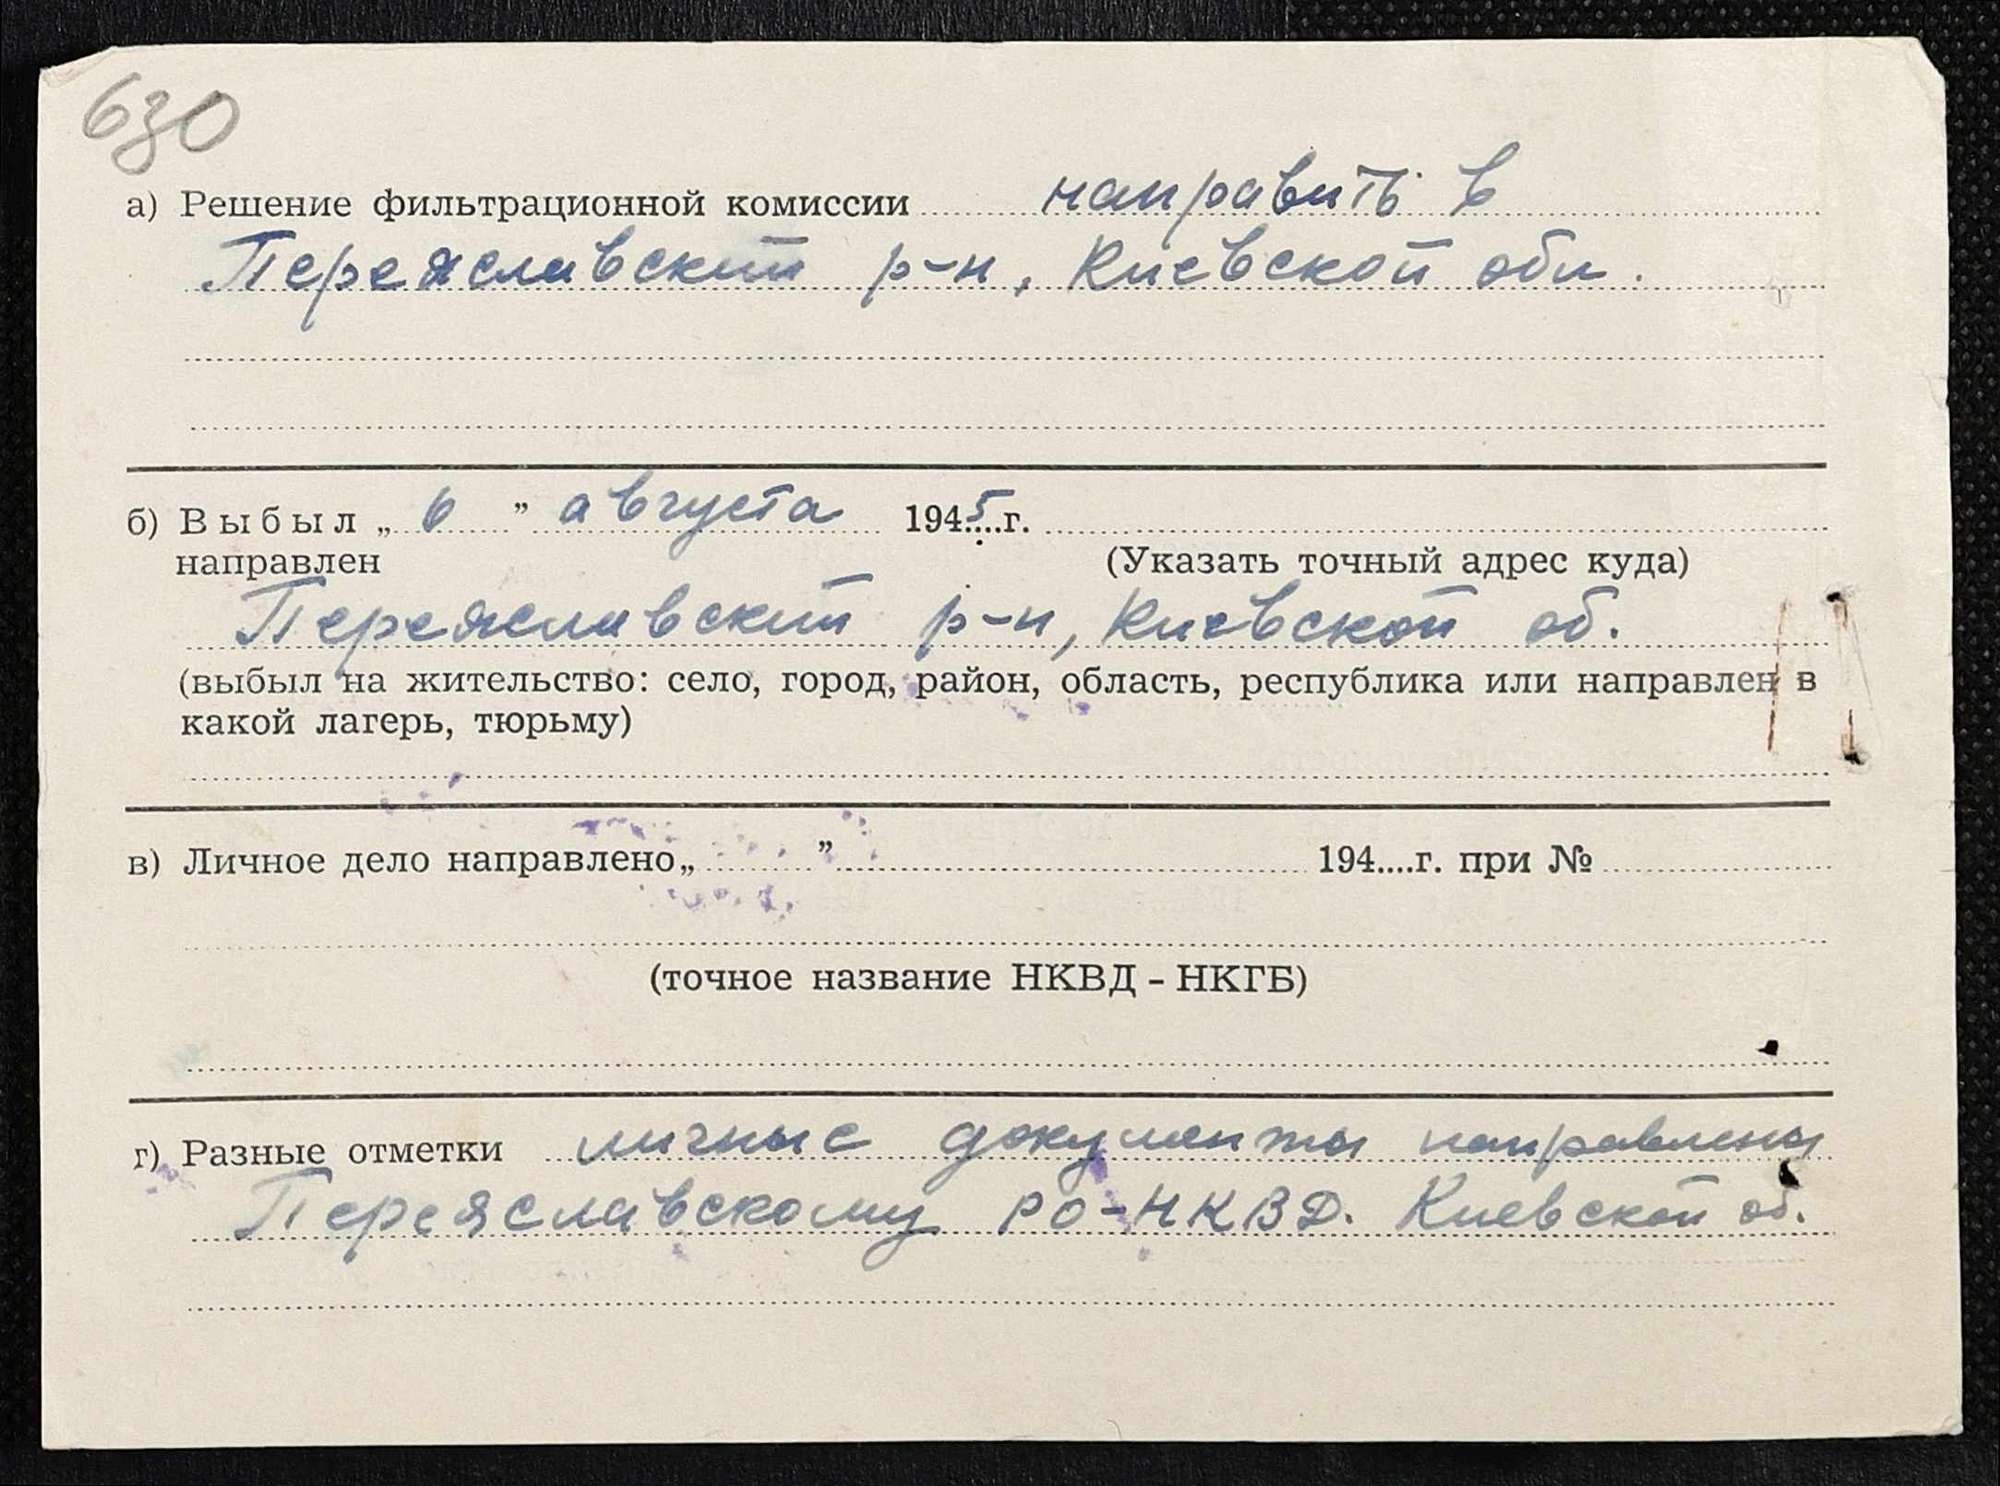 630
а) Решение фильтрационной комиссии направить в
Переяславский р-н, Киевской обл.
б) Выбыл „ 6 ” августа 1945 г.
направлен (Указать точный адрес куда)
Переяславский р-н, Киевской об.
(выбыл на жительство: село, город, район, область, республика или направлен в
какой лагерь, тюрьму)
в) Личное дело направлено „ ” 194....г. при №
(точное название НКВД - НКГБ)
г) Разные отметки личные документы направлены
Переяславскому РО-НКВД. Киевской об.